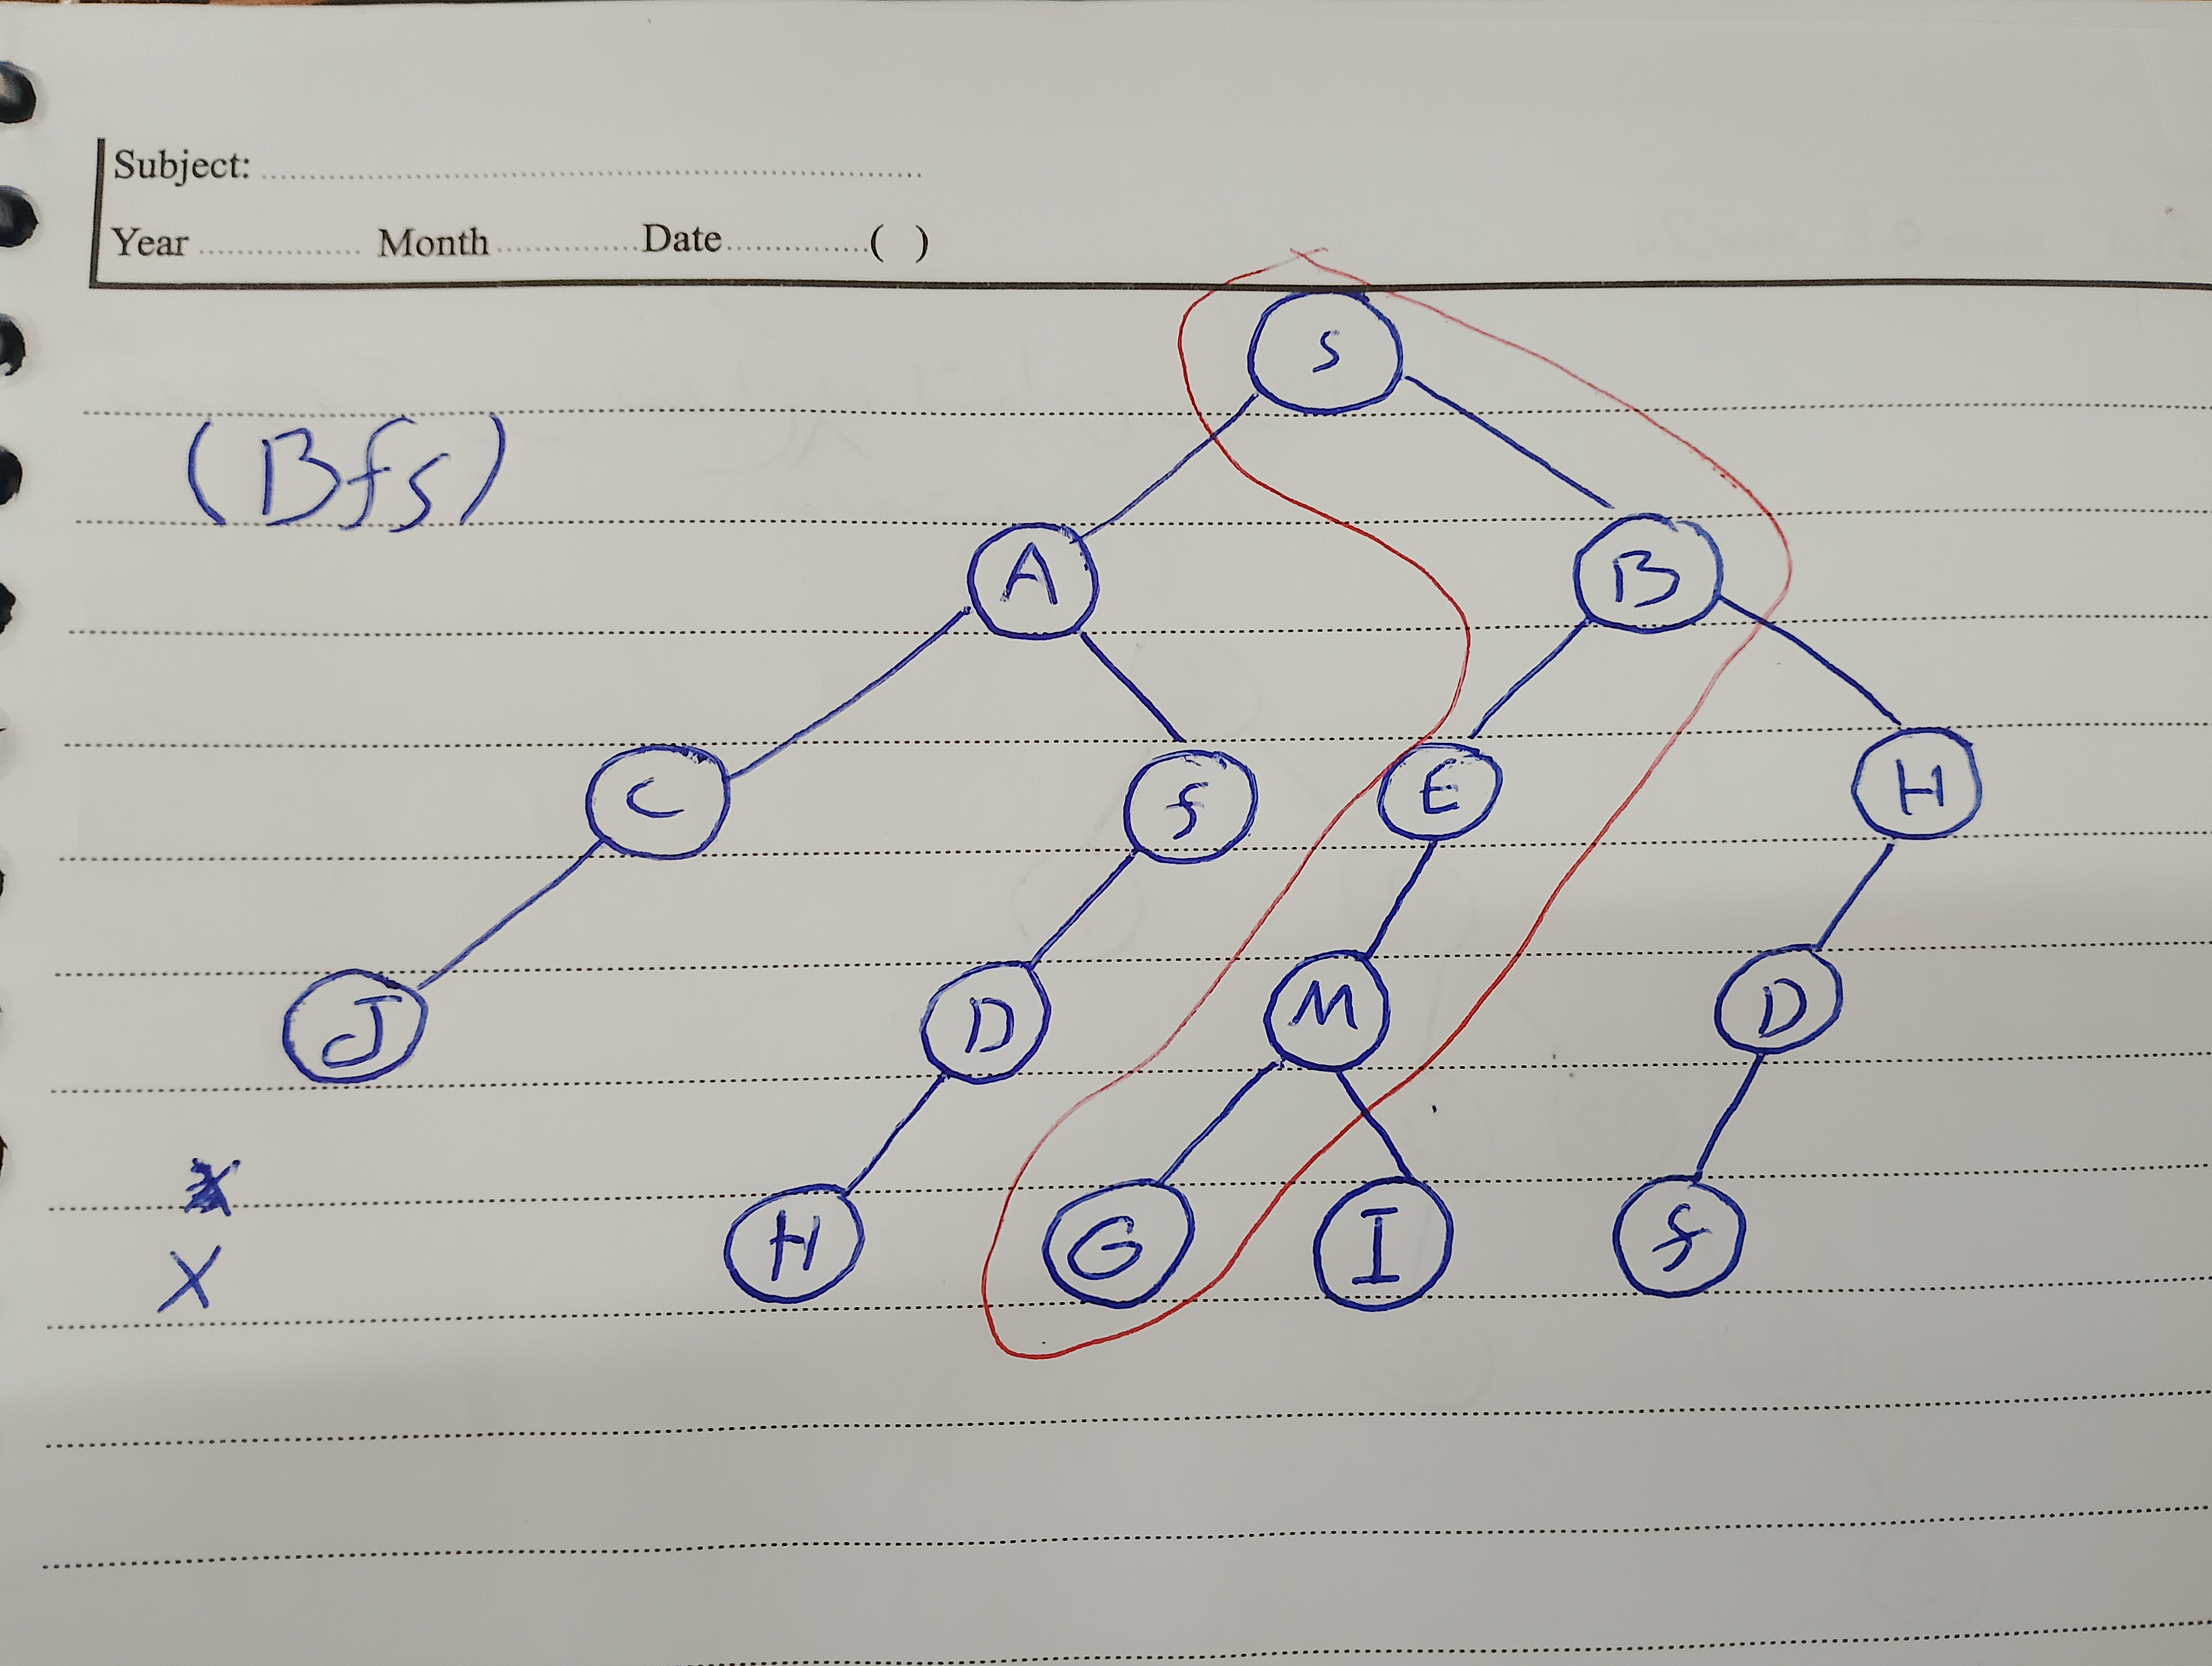 Subject:
Year Month Date ( )
S
(Bfs)
A B
C f E H
J D M D
H G I f
X